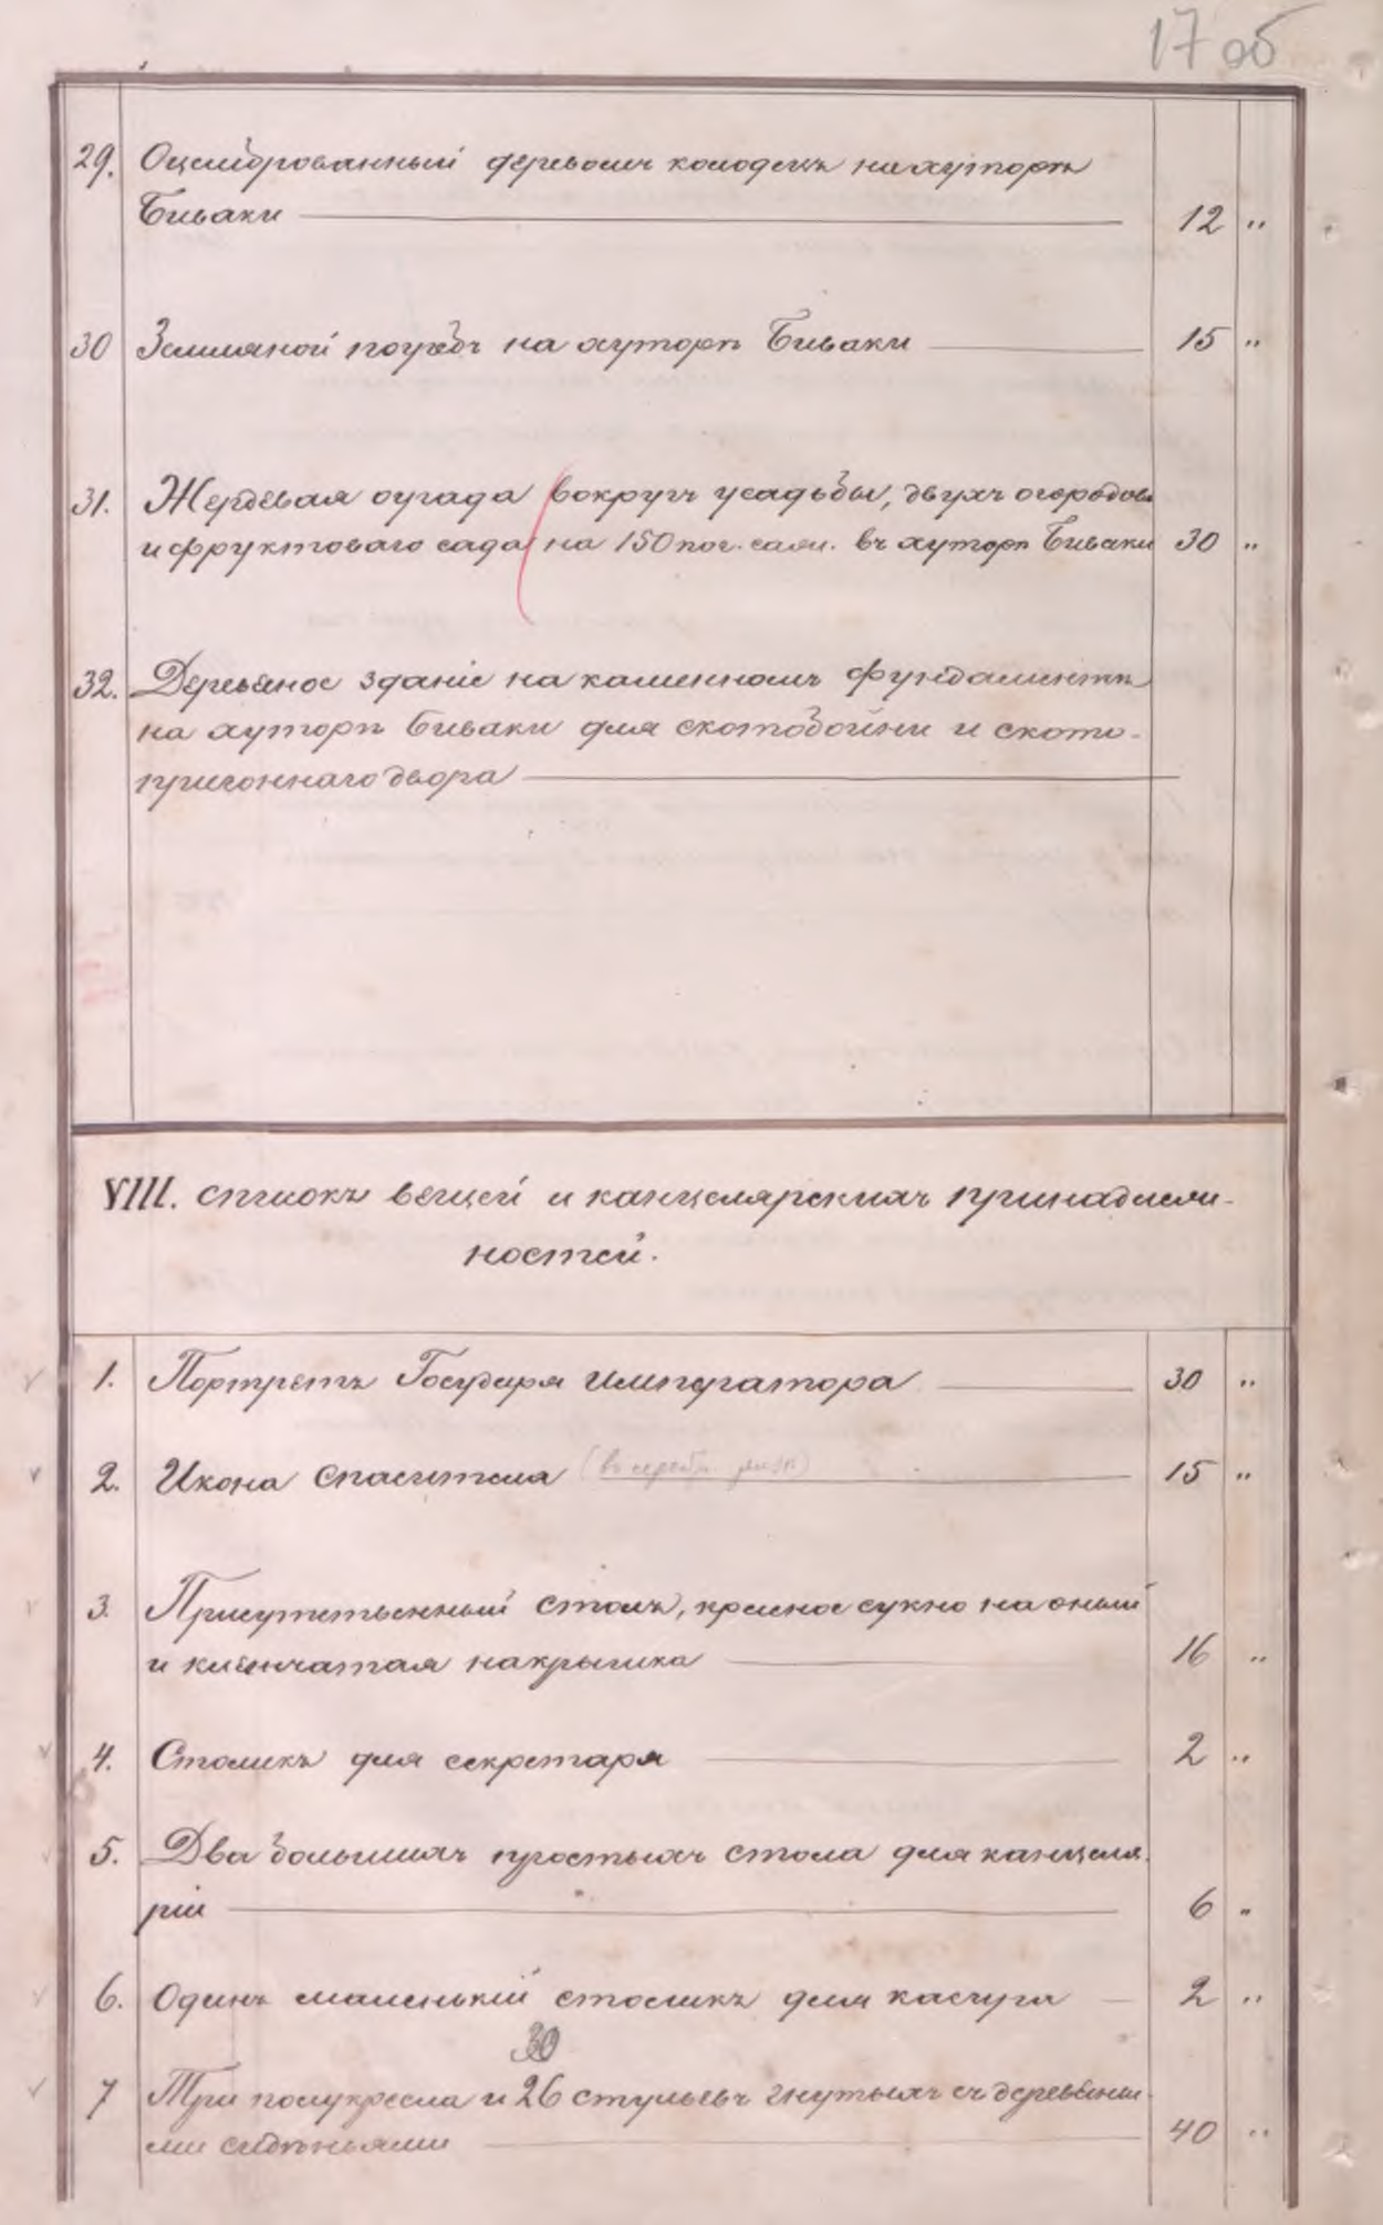 17 об
29. Оцемброванный деревомъ колодецъ на хуторѣ
Биваки 12 "
30 Земляной погребъ на хуторѣ Биваки 15 "
31. Жердевая ограда вокругъ усадьбы, двухъ огородовъ
и фруктоваго сада на 150 пог. саж. въ хуторѣ Биваки 30 "
32. Деревяное зданіе на каменномъ фундаментѣ
на хуторѣ Биваки для скотобойни и ското-
пригоннаго двора
VIII. Списокъ вещей и канцелярскихъ принадлеж-
ностей.
1. Портретъ Государя Императора 30 "
2. Икона Спасителя (въ серебр. ризѣ) 15 "
3. Присутственный столъ, красное сукно на оный
и клеенчатая накрышка 16 "
4. Столикъ для секретаря 2 "
5. Два большихъ простыхъ стола для канцеля-
ріи 6 "
6. Одинъ маленькій столикъ для касира 2 "
30
7 Три полукресла и 26 стульевъ гнутыхъ съ деревяны-
ми сидѣньями 40 "